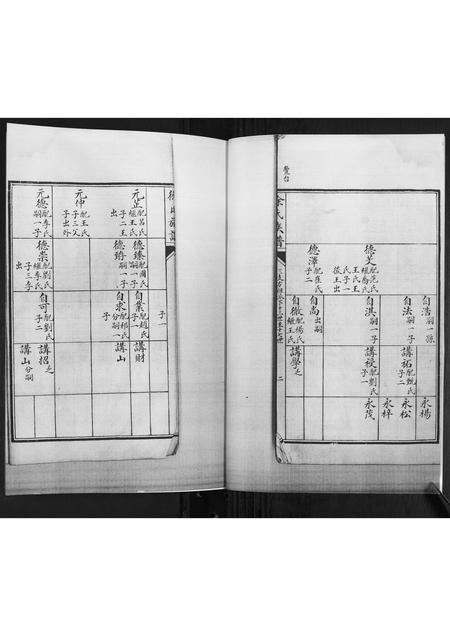 自浩嗣一孫
永楊
自法嗣一子
講祐配甄氏子二
永松
永梓
德芝配范氏
繼喬氏
王氏
氏子一
王出
自淇嗣一子
講祲配劉氏子一
永茂
德澤配崔氏子二
自尚出嗣
自徵配楊氏繼王氏
講學乏
徐氏族譜
二
子一
元芷配呂氏繼王氏子二王出
德臻配爾氏嗣一子
自業配趙氏子一
講財
德錡嗣一子
自求配祁氏分嗣一子
講山
元仲配王氏子二父子出外
元德配李氏嗣一子
德崇配劉氏繼李氏子三李出
自可配劉氏子二
講招乏
講山分嗣